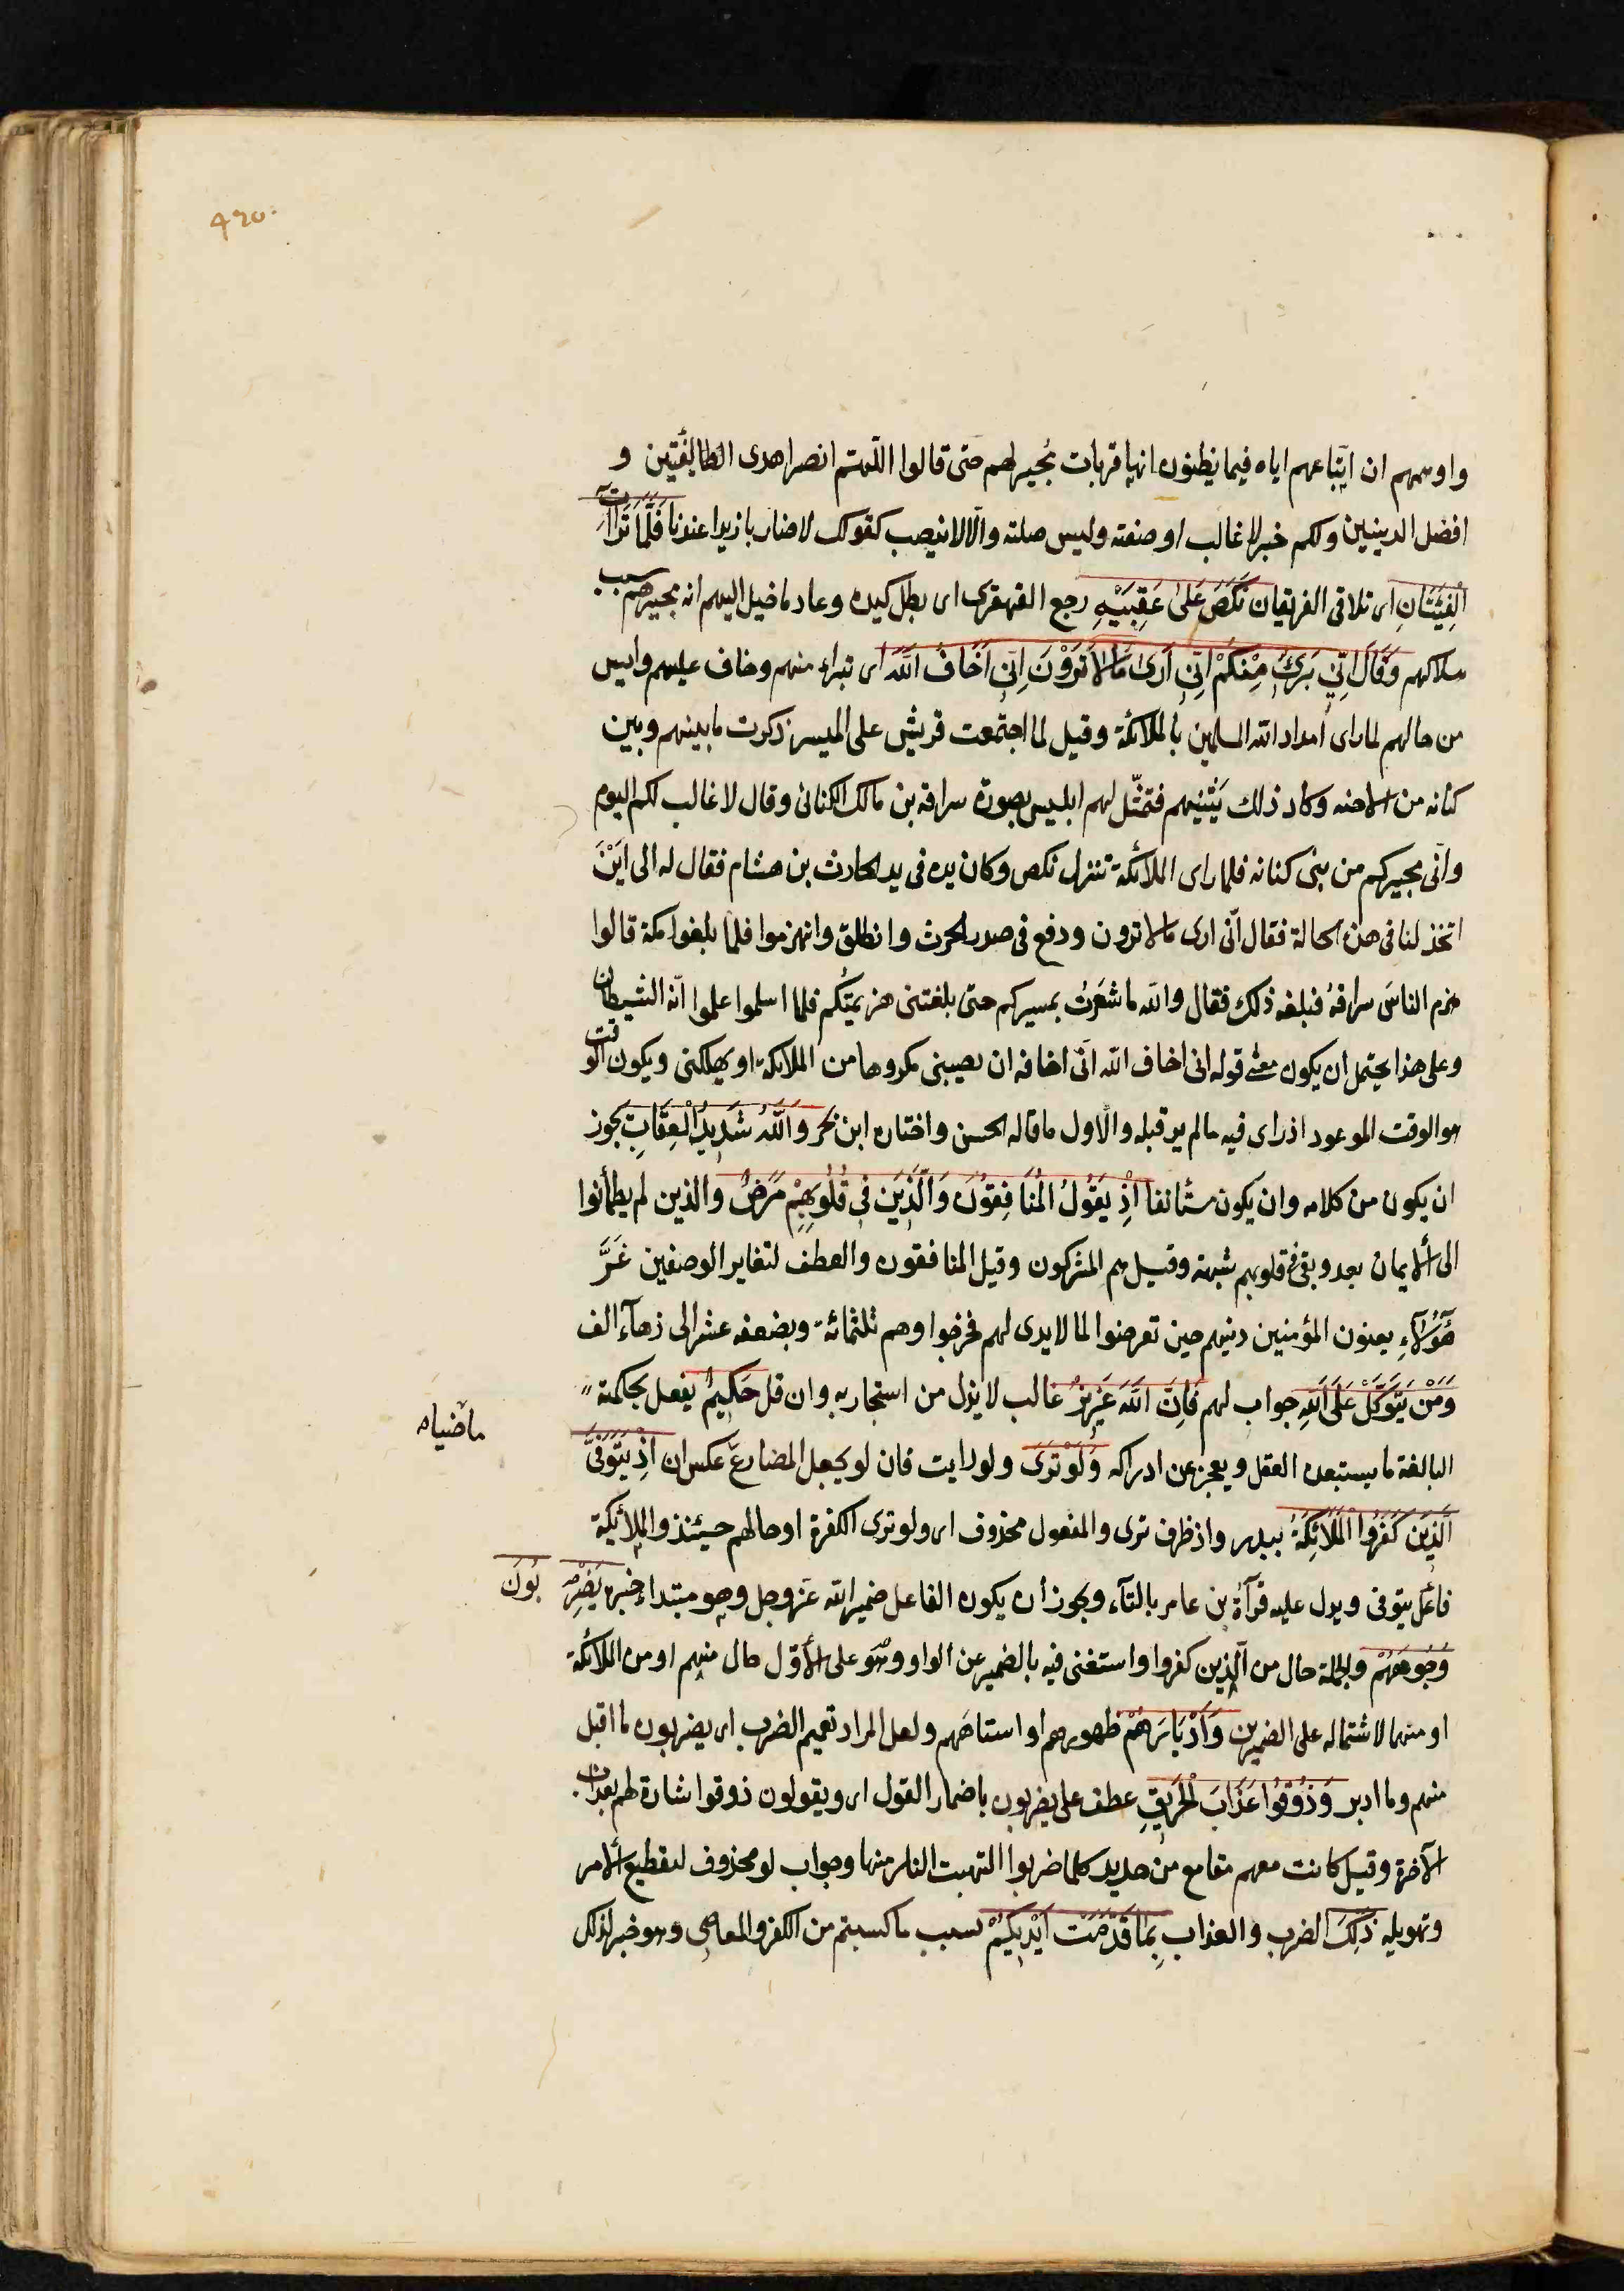 ٤٢٥
واوهمهم ان اتباعهم اياه فيما يظنون انها قربات مجير لهم حتى قالوا اللهم انصر اهدى الطائفتين و
افضل الدينين ولكم خبر لا غالب او صفته وليس صلته والا لانتصب كقولك لا ضاربا زيدا عندنا فَلَمَّا تَرَاءَتِ
الْفِئَتَانِ اى تلاقى الفريقان نَكَصَ عَلَى عَقِبَيْهِ رجع القهقرى اى بطل كيده وعاد ما خيل اليهم انه مجيرهم سبب
هلاكهم وَقَالَ اِنِّي بَرِئٌ مِنْكُمْ اِنِّي اَرَى مَا لَا تَرَوْنَ اِنِّي اَخَافُ اللَّهَ اى تبراء منهم وخاف عليهم وايس
من حالهم لما راى امداد الله المسلمين بالملائكة وقيل لما اجتمعت قريش على المسير ذكرت ما بينهم وبين
كنانه من الاحنه وكاد ذلك يَثْنِيهم فتمثّل لهم ابليس بصورة سراقة بن مالك الكنانى وقال لا غالب لكم اليوم
وانّى مجيركم من بنى كنانه فلما راى الملائكة تنزل نكص وكان يده فى يد الحارث بن هشام فقال له الى اَيْنَ
اتخذلنا فى هذه الحالة فقال انّى ارى ما لا ترون ودفع فى صدر الحرث وانطلق وانهزموا فلما بلغوا مكة قالوا
هزم الناسَ سراقةُ فبلغه ذلك فقال والله ما شعَرتُ بمسيركم حتى بلغتنى هزيمتكم فلما اسلموا علموا انّه الشيطان
وعلى هذا يحتمل ان يكون معنى قوله انى اخاف الله انّى اخافه ان يصيبنى مكروها من الملائكة او يهلكنى ويكون الوقت
هو الوقت الموعود اذ راى فيه ما لم ير قبله والاول ما قاله الحسن واختاره ابن بحر وَاللَّهُ شَدِيدُ الْعِقَابِ يجوز
ان يكون من كلامه وان يكون مستأنفا اِذْ يَقُولُ الْمُنَافِقُونَ وَالَّذِينَ فِي قُلُوبِهِمْ مَرَضٌ والذين لم يطمأنوا
الى الايمان بعد وبقى فى قلوبهم شبهة وقيل هم المشركون وقيل المنافقون والعطف لتغاير الوصفين غَرَّ
هَؤُلَاءِ يعنون المؤمنين دينهم حين تعرضوا لما لا يدى لهم فخرجوا وهم ثلثمائة وبضعه عشر الى زهآء الف
وَمَنْ يَتَوَكَّلْ عَلَى اللَّهِ جواب لهم فَاِنَّ اللَّهَ عَزِيزٌ غالب لا يذل من استجار به وان قل حَكِيمٌ يفعل بحكمته
البالغة ما يستبعده العقل ويعجز عن ادراكه وَلَوْ تَرَى ولو رايت فان لو يجعل المضارع عكس ان اِذْ يَتَوَفَّى
ماضيا
الَّذِينَ كَفَرُوا الْمَلَائِكَةُ ببدر واذ ظرف ترى والمفعول محذوف اى ولو ترى الكفرة او حالهم حينئذ والملائكة
فاعل يتوفى ويدل عليه قرآة بن عامر بالتآء ويجوز ان يكون الفاعل ضمير الله عز وجل وهو مبتداء خبره يَضْرِبُونَ
وُجُوهَهُمْ والجملة حال من الذين كفروا واستغنى فيه بالضمير عن الواو وهو على الاوّل حال منهم او من الملائكة
او منهما لاشتماله على الضميرين وَاَدْبَارَهُمْ ظهورهم او استاههم ولعل المراد تعميم الضرب اى يضربون ما اقبل
منهم وما ادبر وَذُوقُوا عَذَابَ الْحَرِيقِ عطف على يضربون باضمار القول اى ويقولون ذوقوا شارة لهم بعذاب
الآخرة وقيل كانت معهم مقامع من حديد كلما ضربوا التهبت النار منها وجواب لو محذوف لتقطيع الامر
وتهويله ذَلِكَ الضرب والعذاب بِمَا قَدَّمَتْ اَيْدِيكُمْ بسبب ما كسبتم من الكفر والمعاصى وهو خبر لذلك